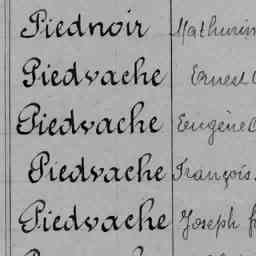 Piednoir Mathurin
Piedvache Ernest
Piedvache Eugène
Piedvache François
Piedvache Joseph